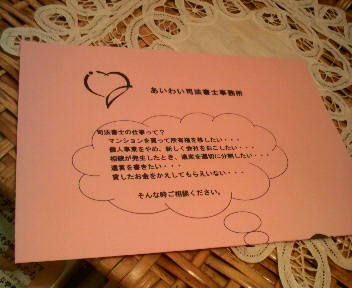 あいわい司法書士事務所
司法書士の仕事って？
マンションを買って所有権を移したい・・・
個人事業をやめ、新しく会社をおこしたい・・・
相続が発生したとき、遺産を適切に分割したい・・・
遺言を書きたい・・・
貸したお金をかえしてもらえない・・・
そんな時ご相談ください。